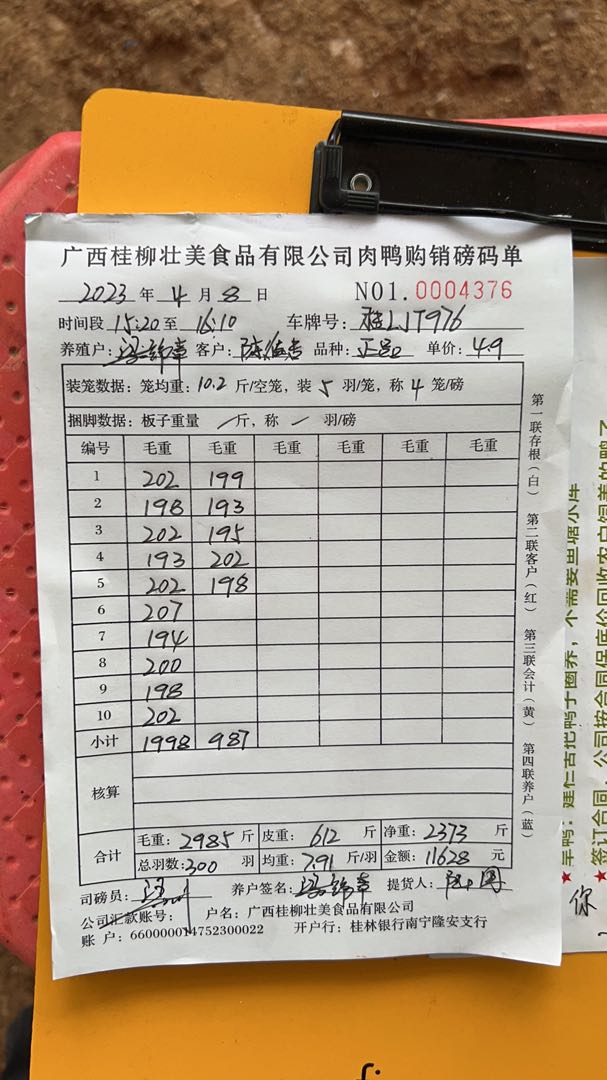 广西桂柳壮美食品有限公司肉鸭购销磅码单
2023 年 4 月 8 日 NO1.0004376
时间段 15:20 至 16:10 车牌号: 桂LJT976
养殖户: 客户: 品种: 单价: 4.9
装笼数据: 笼均重: 10.2 斤/空笼, 装 5 羽/笼, 称 4 笼/磅
捆脚数据: 板子重量 / 斤, 称 / 羽/磅
编号 毛重 毛重 毛重 毛重 毛重 毛重
1 202 199
2 198 193
3 202 195
4 193 202
5 202 198
6 207
7 194
8 200
9 198
10 202
小计 1998 987
核算
合计 毛重: 2985 斤 皮重: 612 斤 净重: 2373 斤
总羽数: 300 羽 均重: 7.91 斤/羽 金额: 11628 元
司磅员: 养户签名: 提货人:
公司汇款账号: 户名: 广西桂柳壮美食品有限公司
账 户: 660000014752300022 开户行: 桂林银行南宁隆安支行
第一联存根(白) 第二联客户(红) 第三联会计(黄) 第四联养户(蓝)
你